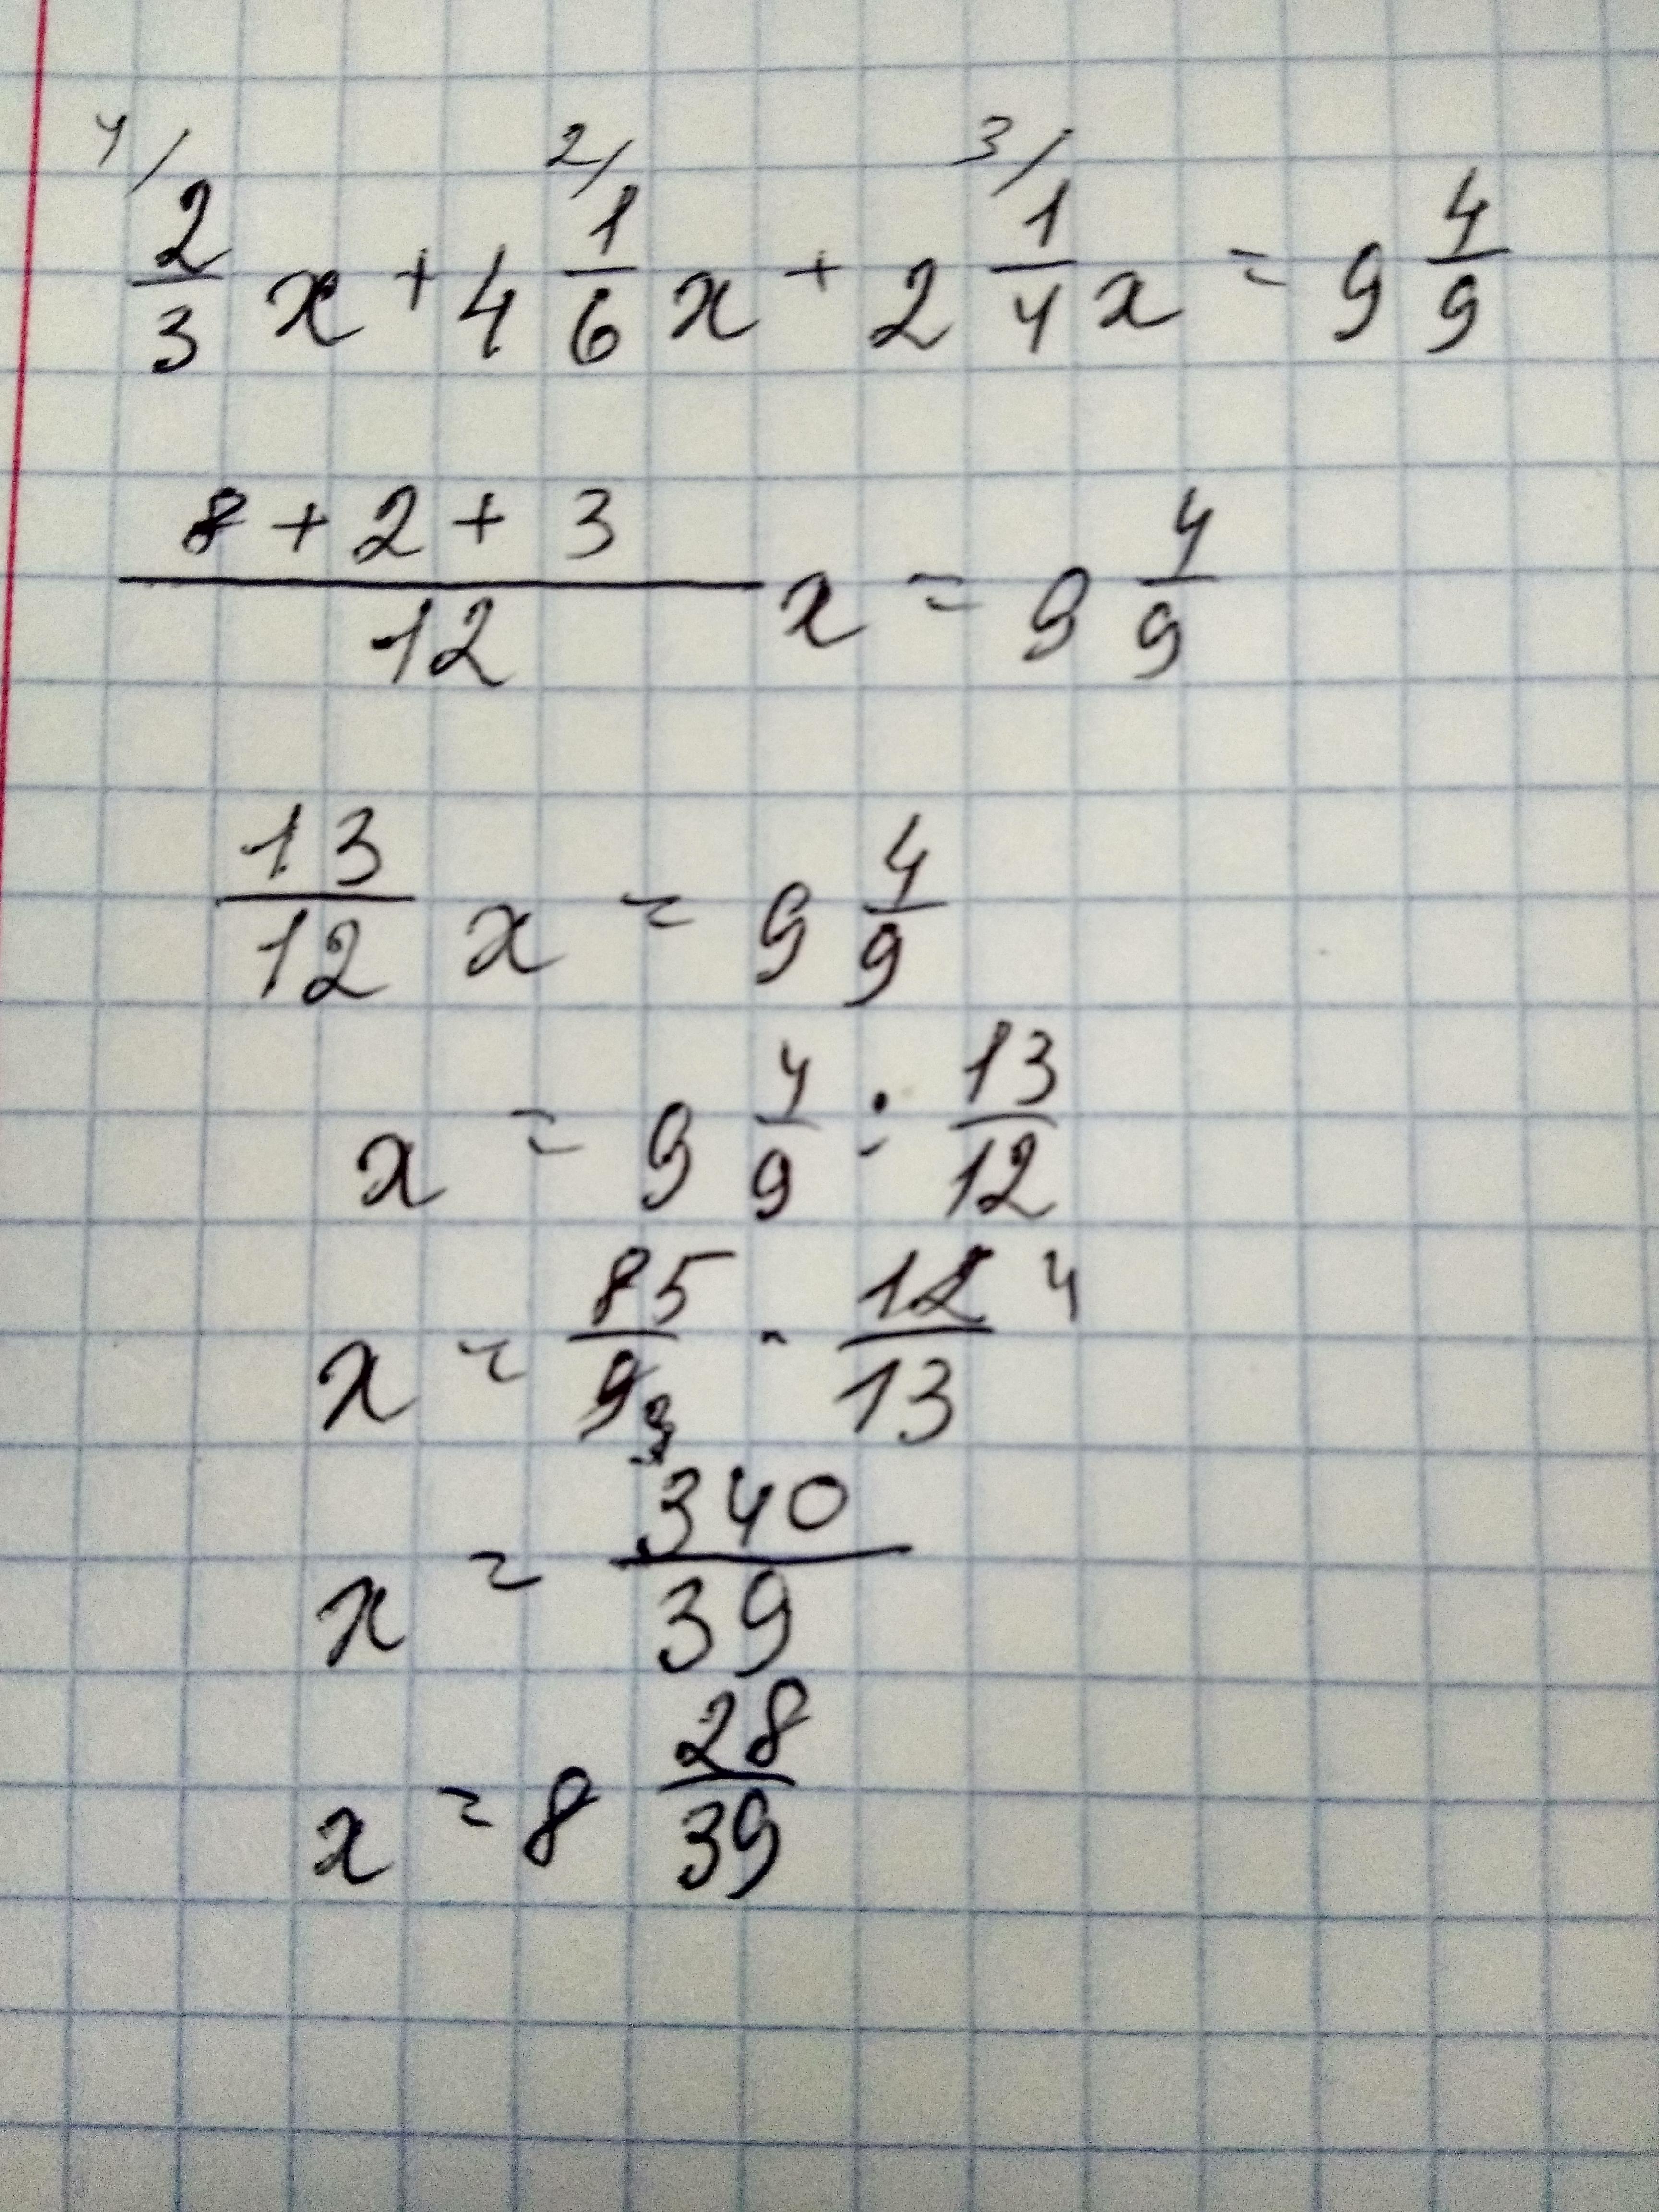 4/ 2/3 x + 4 2/ 1/6 x + 2 3/ 1/4 x = 9 4/9
8 + 2 + 3 / 12 x = 9 4/9
13/12 x = 9 4/9
x = 9 4/9 : 13/12
x = 85/9 3 · 12/13 4
x = 340/39
x = 8 28/39